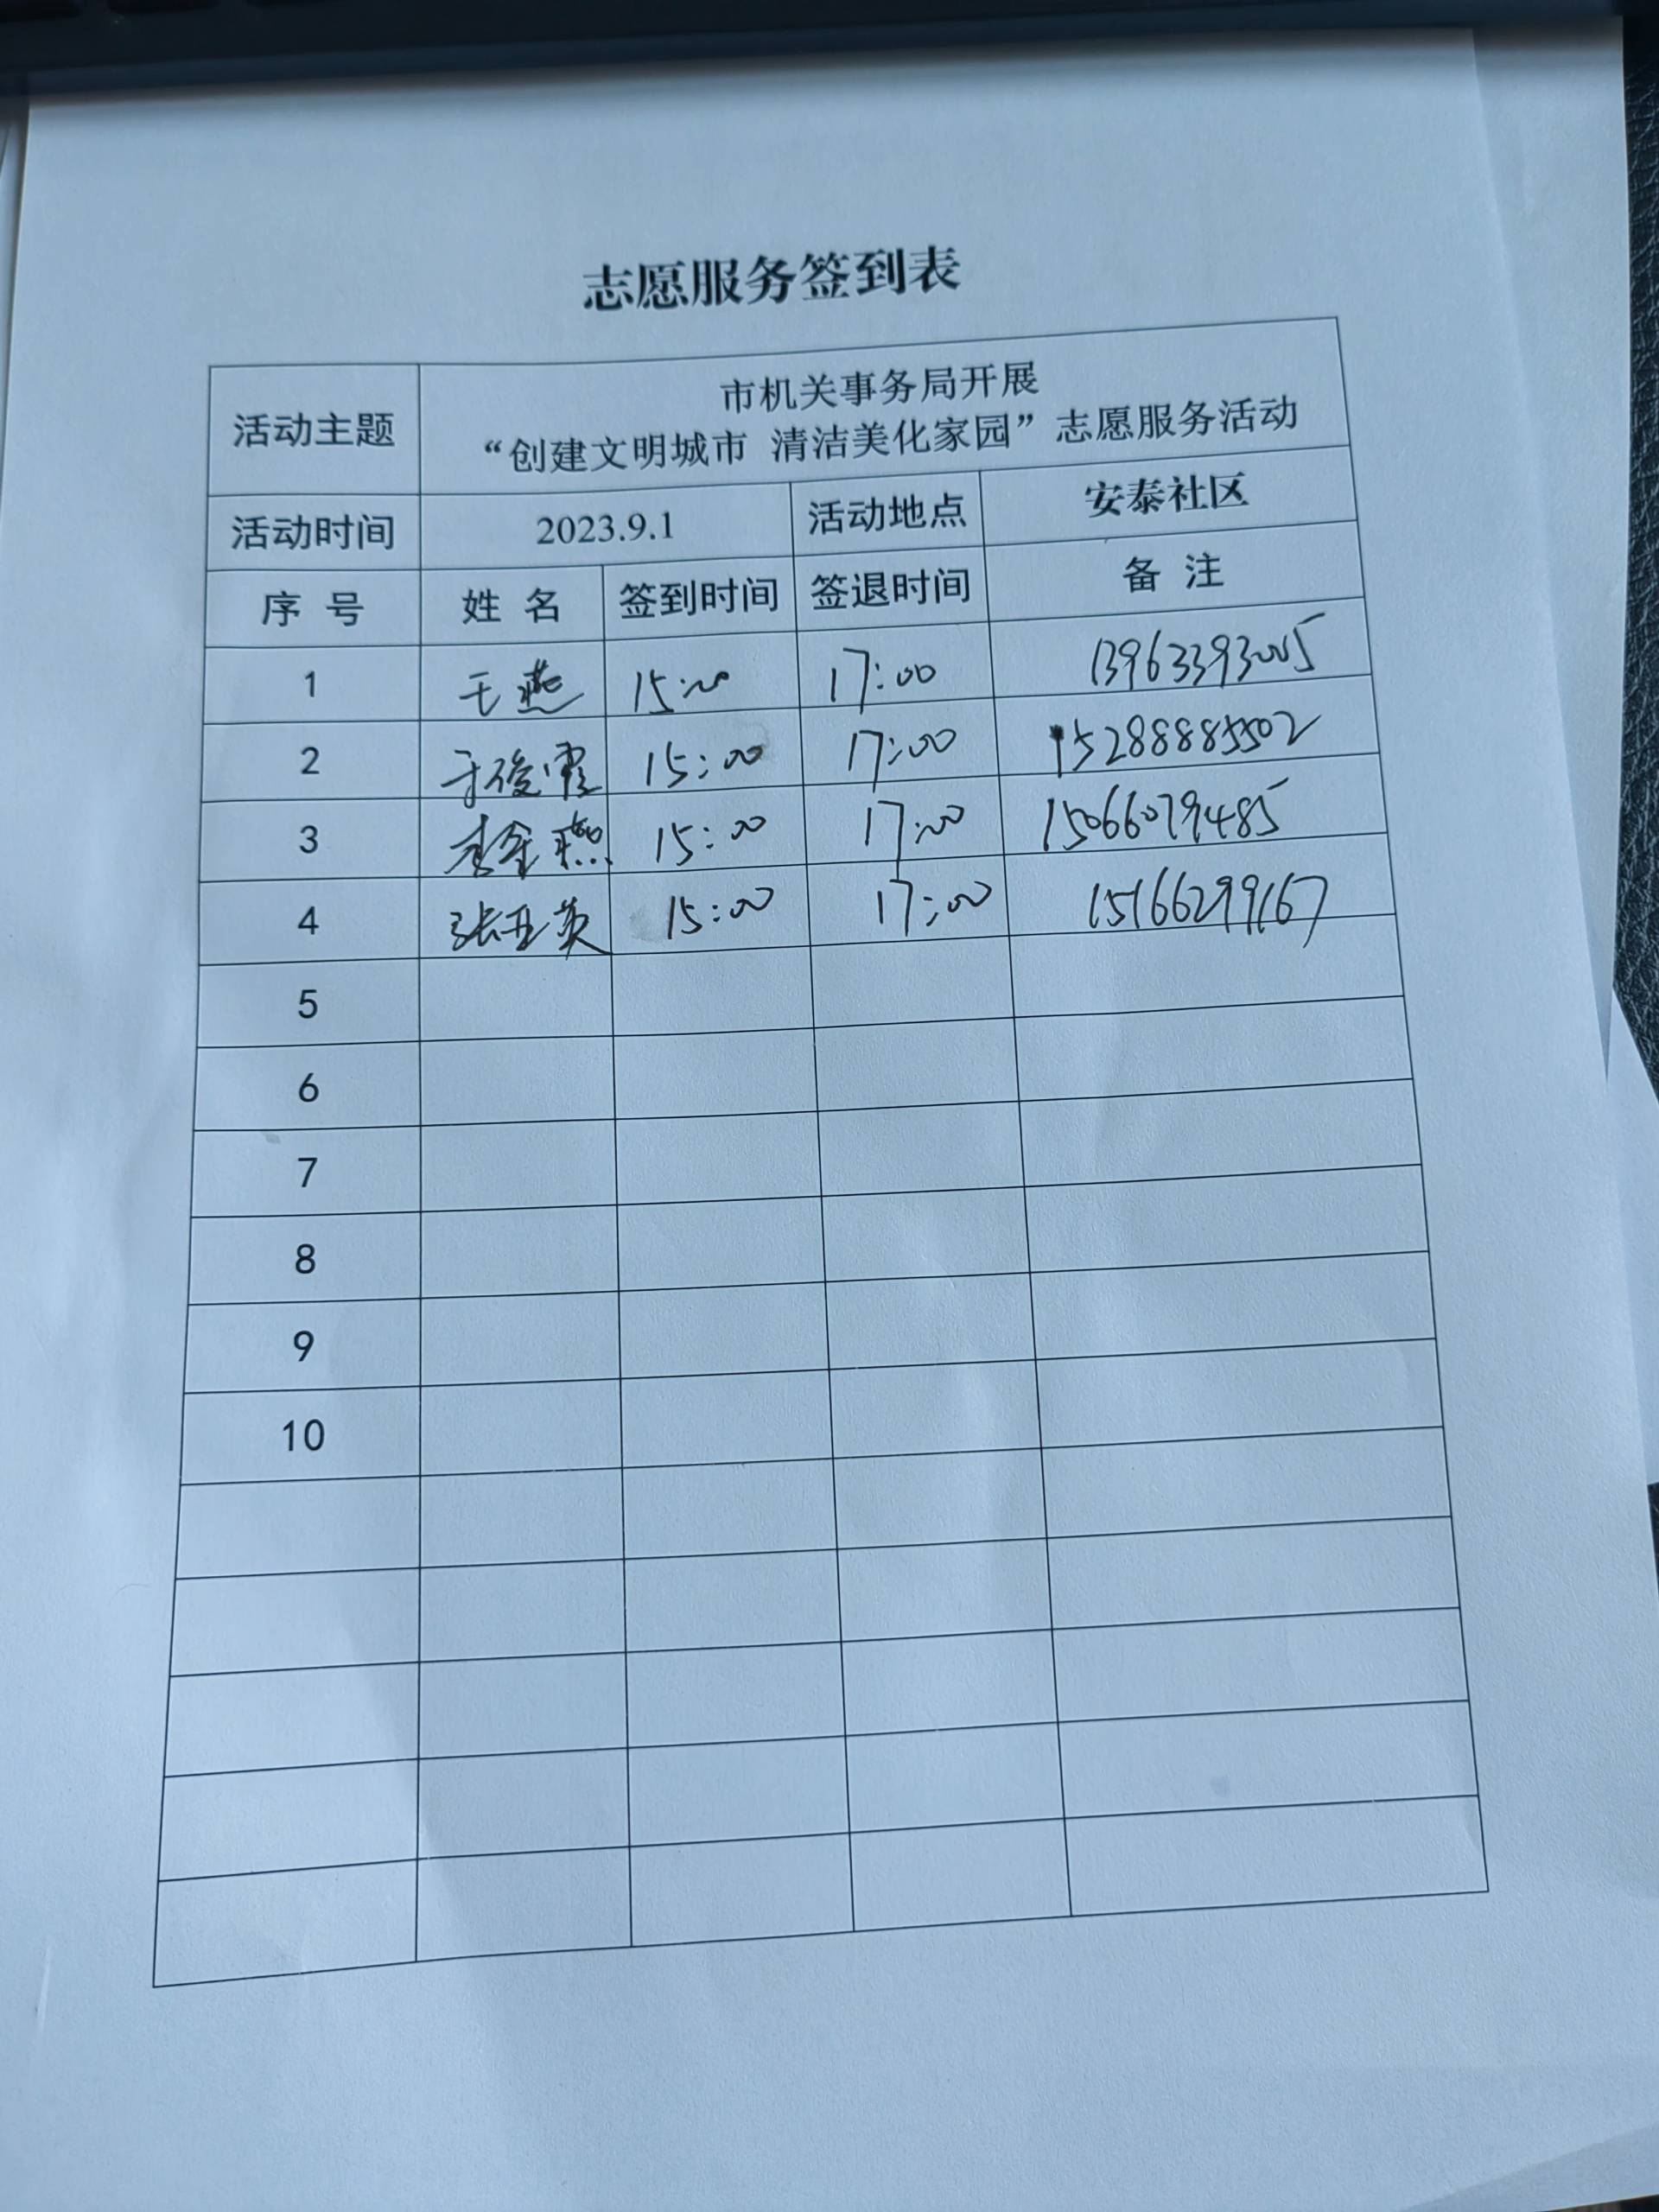 志愿服务签到表
活动主题 市机关事务局开展
“创建文明城市 清洁美化家园”志愿服务活动
活动时间 2023.9.1 活动地点 安泰社区
序 号 姓 名 签到时间 签退时间 备 注
1 燕 15:00 17:00
2 于俊霞 15:00 17:00 15288885502
3 李金燕 15:00 17:00 15066079485
4 张亚英 15:00 17:00 15166299167
5
6
7
8
9
10